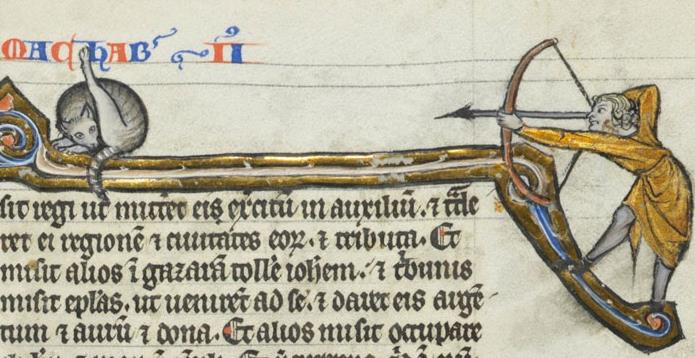 MACHAB' II
sit regi ut mitt'et eis ex'citū in auxiliū. ⁊ t'dle
ret ei regionē ⁊ ciuitates eoꝝ. ⁊ tributa. Et
misit alios ī gazarā tolle' iohem. ⁊ t'bunis
misit ep'las. ut uenirēt ad se. ⁊ daret eis argē
tum ⁊ aurū ⁊ dona. Et alios misit occupare